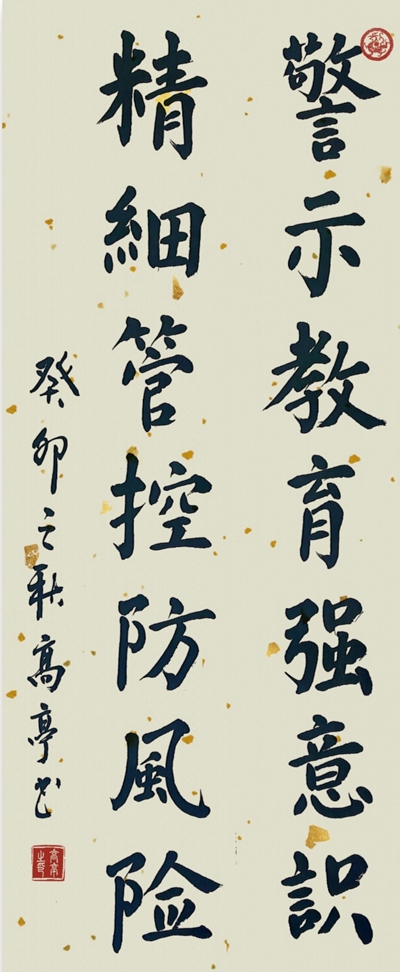 警示教育强意识
精细管控防風险
癸卯之秋高亭书